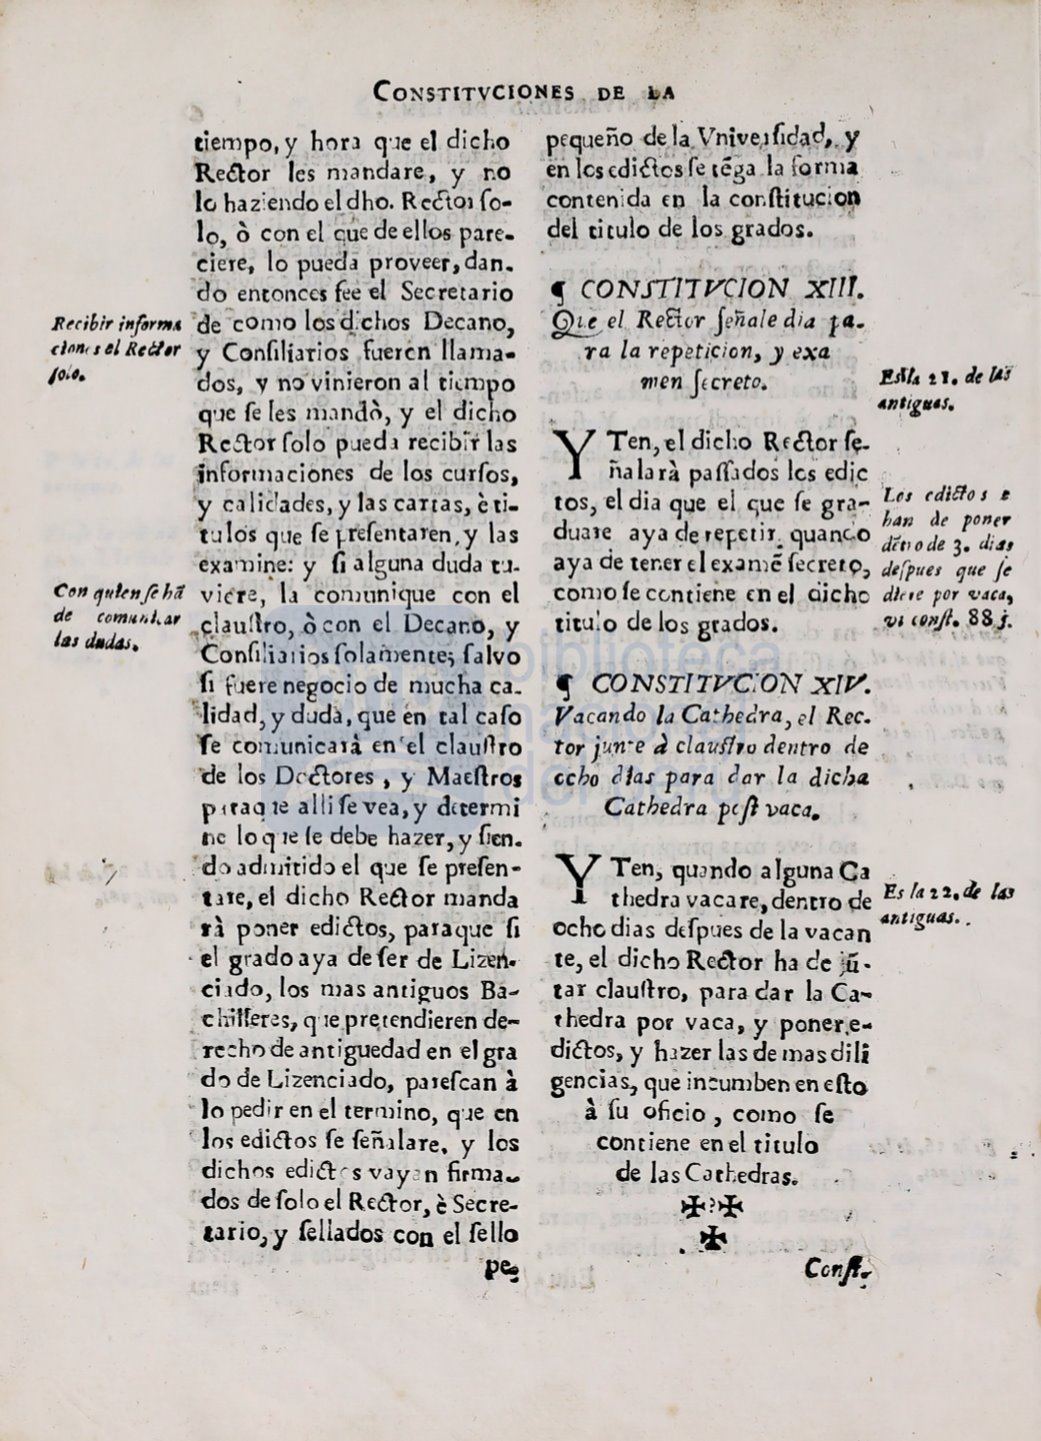 CONSTITVCIONES DE LA
tiempo, y hora que el dicho
Rector les mandare, y no
lo haziendo el dho. Rector ſo-
lo, ò con el que de ellos pare-
ciere, lo pueda proveer, dan-
do entonces fee el Secretario
de como los dichos Decano,
y Conſiliarios fueren llama-
dos, y no vinieron al tiempo
que ſe les mandò, y el dicho
Rector ſolo pueda recibir las
informaciones de los curſos,
y calidades, y las cartas, è ti-
tulos que ſe preſentaren, y las
examine: y ſi alguna duda tu-
viere, la comunique con el
clauſtro, ò con el Decano, y
Conſiliarios ſolamente; ſalvo
ſi fuere negocio de mucha ca-
lidad, y duda, que en tal caſo
ſe comunicarà en el clauſtro
de los Doctores, y Maeſtros
paraque alli ſe vea, y determi
ne lo que ſe debe hazer, y ſien-
do admitido el que ſe preſen-
tare, el dicho Rector manda
rà poner edictos, paraque ſi
el grado aya de ſer de Lizen-
ciado, los mas antiguos Ba-
chilleres, que pretendieren de-
recho de antiguedad en el gra
do de Lizenciado, pareſcan à
lo pedir en el termino, que en
los edictos ſe ſeñalare, y los
dichos edictos vayan firma-
dos de ſolo el Rector, è Secre-
tario, y ſellados con el ſello
pe-
Recibir informa
ciones el Rector
ſolo.
Con quien ſe hã
de comunicar
las dudas.
pequeño de la Vniverſidad, y
en los edictos ſe tẽga la forma
contenida en la conſtitucion
del titulo de los grados.
¶ CONSTITVCION XIII.
Que el Rector ſeñale dia pa-
ra la repeticion, y exa
men ſecreto.
YTen, el dicho Rector ſe-
ñalarà paſſados los edic
tos, el dia que el que ſe gra-
duare aya de repetir, quando
aya de tener el examẽ ſecreto,
como ſe contiene en el dicho
titulo de los grados.
¶ CONSTITVCION XIV.
Vacando la Cathedra, el Rec-
tor junte à clauſtro dentro de
ocho dias para dar la dicha
Cathedra poſt vaca.
YTen, quando alguna Ca
thedra vacare, dentro de
ocho dias deſpues de la vacan
te, el dicho Rector ha de jũ-
tar clauſtro, para dar la Ca-
thedra por vaca, y poner e-
dictos, y hazer las demas dili
gencias, que incumben en eſto
à ſu oficio, como ſe
contiene en el titulo
de las Cathedras.
✠?✠
✠
Conſt.
Eſtla 21. de las
antiguas.
Los edictos ſ
han de poner
dẽtro de 3. dias
deſpues que ſe
diere por vaca,
vt conſt. 88 j.
Es la 22. de las
antiguas.
biblioteca
nacional
del perú